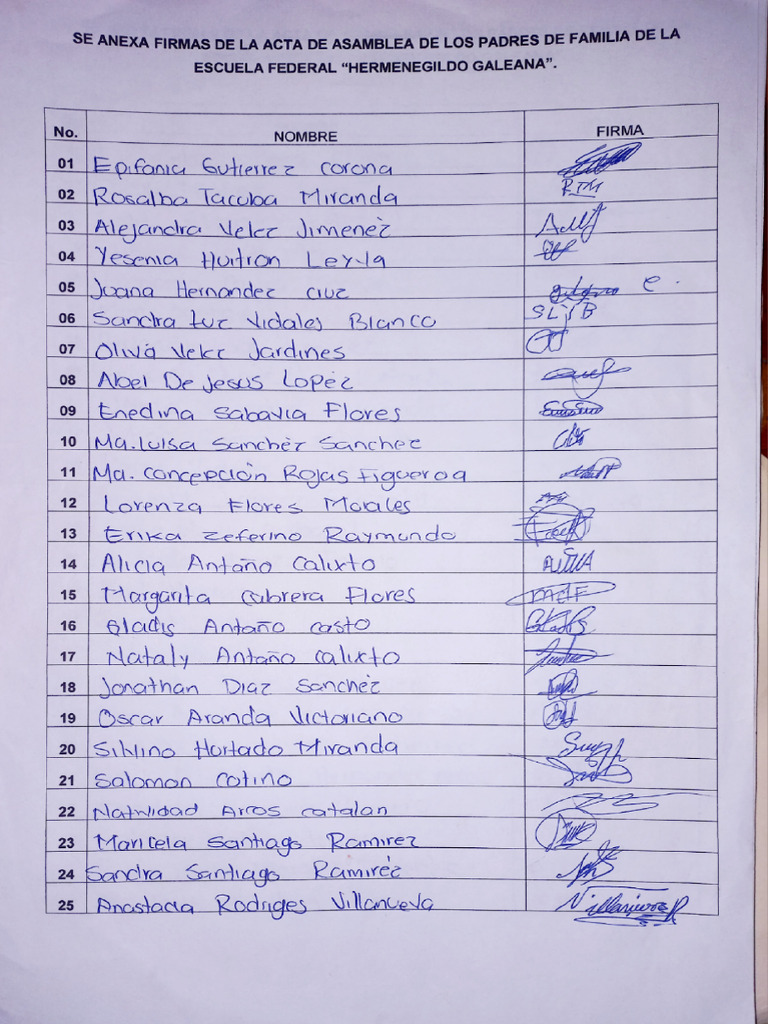 SE ANEXA FIRMAS DE LA ACTA DE ASAMBLEA DE LOS PADRES DE FAMILIA DE LA
ESCUELA FEDERAL “HERMENEGILDO GALEANA”.
No. NOMBRE FIRMA
01 Epifania Gutierrez corona
02 Rosalba Tacuba Miranda RTM
03 Alejandra Velez Jimenèz
04 Yesenia Huitron Leyva
05 Juana Hernandez cruz
06 Sandra Luz Vidales Blanco SLVB
07 Oliva Velez Jardines
08 Abel De Jesus Lopèz
09 Enedina Sabavia Flores
10 Ma. Luisa Sanchèz Sanchez
11 Ma. Concepciòn Rojas Figueroa
12 Lorenza Flores Morales
13 Erika zeferino Raymundo
14 Alicia Antaño Calixto
15 Margarita Cabrera Flores
16 Gladis Antaño casto
17 Nataly Antaño calixto
18 Jonathan Diaz Sanchèz
19 Oscar Aranda Victoriano
20 Silvino Hurtado Miranda
21 Salomon Cotino
22 Natividad Arcos catalan
23 Maricela Santiago Ramirez
24 Sandra Santiago Ramirèz
25 Anastacia Rodriges Villanueva